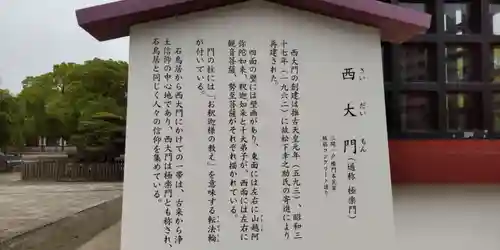 西大門（通称 極楽門）
さい だい もん
三間一戸 楼門本瓦葺
鉄筋コンクリート造り
西大門の創建は推古天皇元年（五九三）、昭和三
十七年（一九六二）に故松下幸之助氏の寄進により
再建された。
四面の壁には壁画があり、東面には左右に山越阿
弥陀如来、釈迦如来と十大弟子が、西面には左右に
観音菩薩、勢至菩薩がそれぞれ描かれている。
門の柱には「お釈迦様の教え」を意味する転法輪
が付いている。
石鳥居から西大門にかけての一帯は、古来から浄
土信仰の中心地であり、西大門は極楽門とも称され、
石鳥居と同じく人々の信仰を集めている。